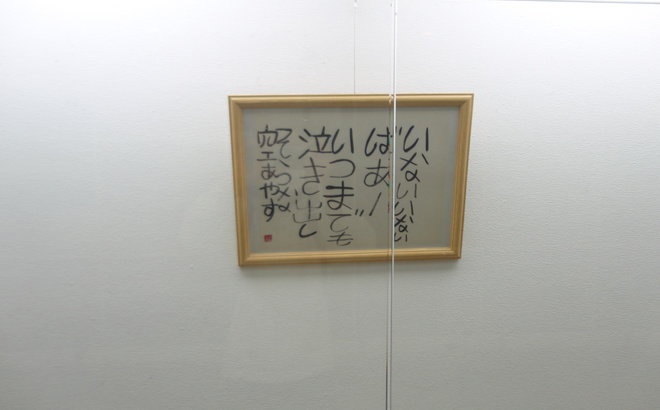 いないいない
ばあ!
いつまでも
泣き出し
空をあやす